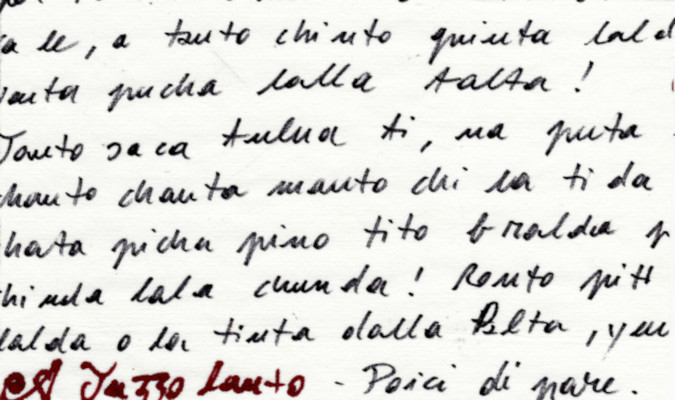 a le, a tanto chinto quinta lald
vanta pucha lalla talta!
Tonto saca tulna ti, na puta
chanto chanta manto chi la ti da
hata picha pino tito bralda p
hinda lala chunda! Ronto pitt
lalda o la tinta dalla Pelta, yen
Juzzo lanto - Poici di pare.